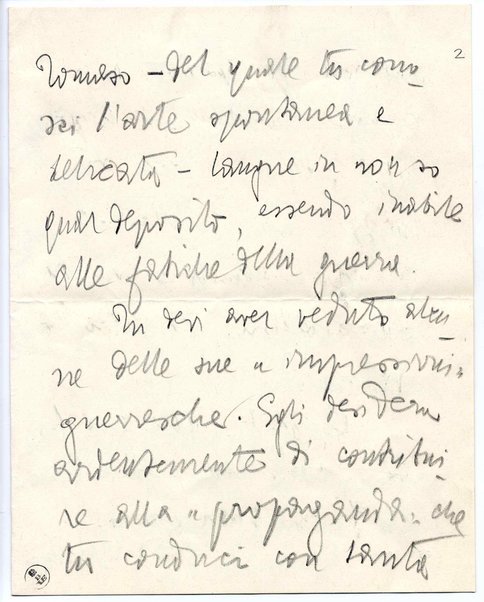 2
Romeso - del quale tu cono-
sci l'arte spontanea e
delicata - langue in non so
qual deposito, essendo inabile
alle fatiche della guerra.
Tu devi aver veduto alcu-
ne delle sue "impressioni"
guerresche. Egli desidera
ardentemente di contribui-
re alla "propaganda" che
tu conduci con tanta